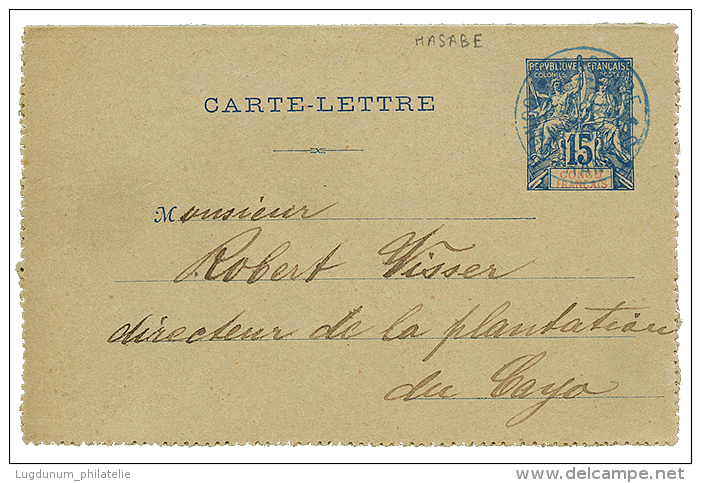 MASABE
REPVBLIQVE FRANÇAISE
COLONIES POSTES
15
CONGO
FRANÇAIS
CARTE-LETTRE
Monsieur
Robert Visser
directeur de la plantation
du Cayo
Lugdunum_philatelie
©delcampe.net